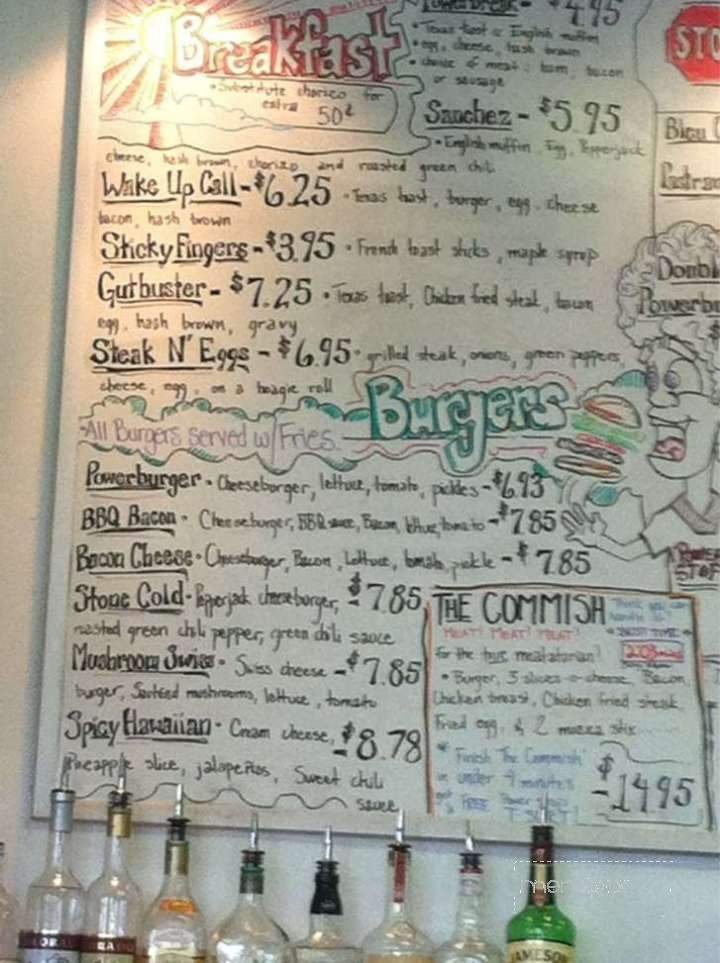 Breakfast
• Substitute chorizo for
extra 50¢
$4.95
• Texas toast or English muffin
• egg, cheese, hash brown
• choice of meat: ham, bacon
or sausage
Sanchez - $5.95
• English muffin, Egg, Pepperjack
cheese, hash brown, chorizo and roasted green chili
Wake Up Call - $6.25 • Texas toast, burger, egg, cheese
bacon, hash brown
Sticky Fingers - $3.95 • French toast sticks, maple syrup
Gutbuster - $7.25 • Texas toast, Chicken fried steak, bacon
egg, hash brown, gravy
Steak N' Eggs - $6.95 • grilled steak, onions, green peppers
cheese, egg, on a hoagie roll
Burgers
• All Burgers served w/ Fries
Powerburger • Cheeseburger, lettuce, tomato, pickles - $6.93
BBQ Bacon • Cheeseburger, BBQ sauce, Bacon, lettuce, tomato - $7.85
Bacon Cheese • Cheeseburger, Bacon, Lettuce, tomato, pickle - $7.85
Stone Cold • Pepperjack cheeseburger, - $7.85
roasted green chili pepper, green chili sauce
Mushroom Swiss • Swiss cheese - $7.85
burger, Sautéed mushrooms, lettuce, tomato
Spicy Hawaiian • Cream cheese, - $8.78
Pineapple slice, jalapeños, Sweet chili
sauce
THE COMMISH
MEAT! MEAT! MEAT!
For the true meatatarian!
• Burger, 3 slices-o-cheese, Bacon,
Chicken breast, Chicken fried steak,
Fried egg, & 2 mozza stix
* Finish The Commish
in under 9 minutes
get a FREE Power
T-SHIRT!
$14.95
STO
Bleu
Pastra
Doubl
Powerbu
STOP
JAMESON